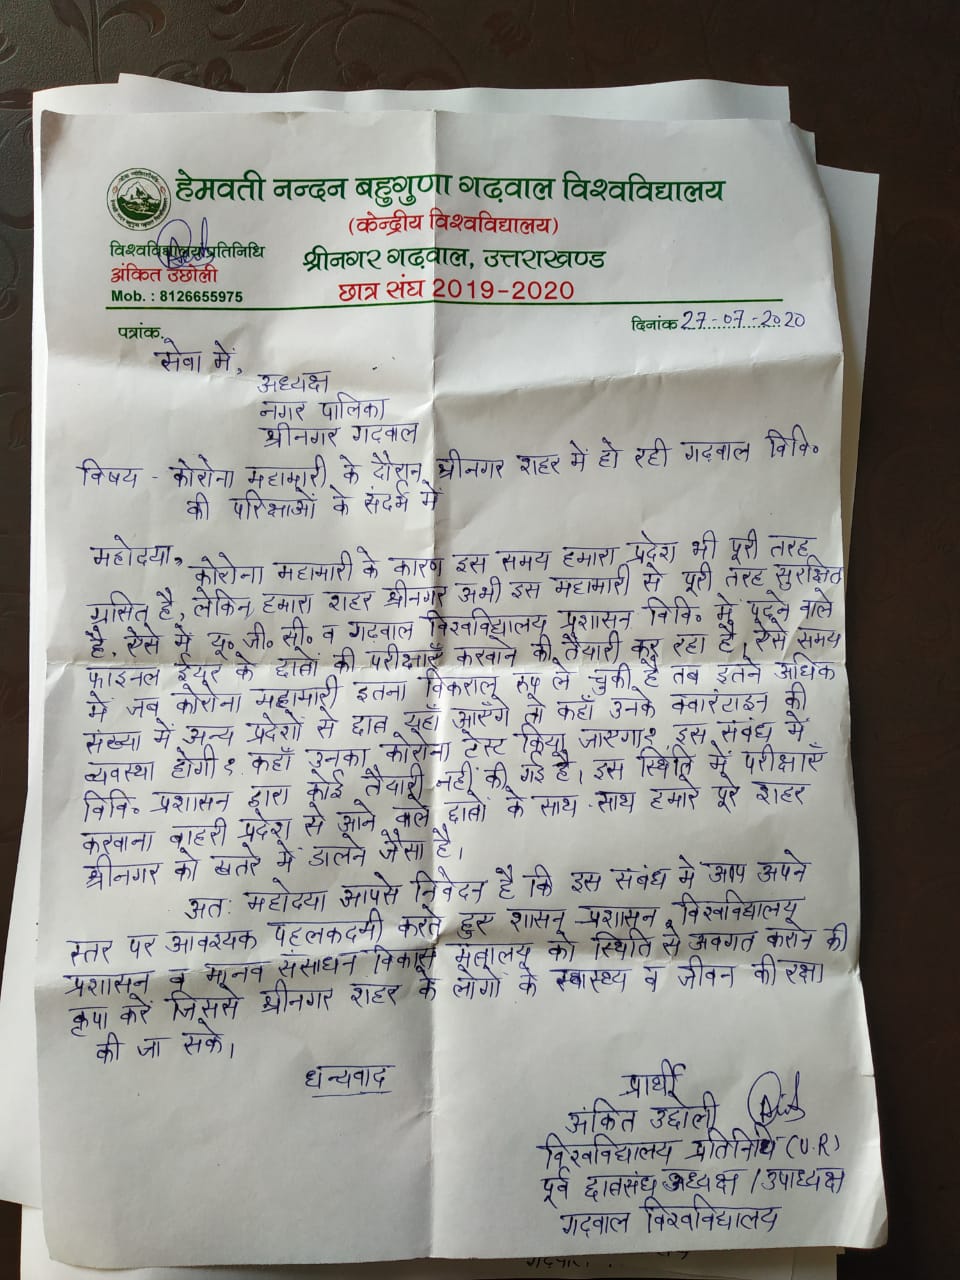 हेमवती नन्दन बहुगुणा गढ़वाल विश्वविद्यालय
(केन्द्रीय विश्वविद्यालय)
विश्वविद्यालय प्रतिनिधि
श्रीनगर गढ़वाल, उत्तराखण्ड
अंकित उछोली
छात्र संघ 2019-2020
Mob. : 8126655975
पत्रांक.
दिनांक 27-07-2020
सेवा में,
अध्यक्ष
नगर पालिका
श्रीनगर गढ़वाल
विषय - कोरोना महामारी के दौरान श्रीनगर शहर में हो रही गढ़वाल विवि०
की परिक्षाओं के संदर्भ में
महोदया,
कोरोना महामारी के कारण इस समय हमारा प्रदेश भी पूरी तरह
ग्रसित है, लेकिन हमारा शहर श्रीनगर अभी इस महामारी से पूरी तरह सुरक्षित
है, ऐसे में यू० जी० सी० व गढ़वाल विश्वविद्यालय प्रशासन विवि० में पढ़ने वाले
फाइनल ईयर के छात्रों की परीक्षाएँ करवाने की तैयारी कर रहा है। ऐसे समय
में जब कोरोना महामारी इतना विकराल रूप ले चुकी है तब इतने अधिक
संख्या में अन्य प्रदेशों से छात्र यहाँ आएँगे तो कहाँ उनके क्वारंटाइन की
व्यवस्था होगी? कहाँ उनका कोरोना टेस्ट किया जाएगा? इस संबंध में
विवि० प्रशासन द्वारा कोई तैयारी नहीं की गई है। इस स्थिति में परीक्षाएँ
करवाना बाहरी प्रदेश से आने वाले छात्रों के साथ-साथ हमारे पूरे शहर
श्रीनगर को खतरे में डालने जैसा है।
अतः महोदया आपसे निवेदन है कि इस संबंध में आप अपने
स्तर पर आवश्यक पहलकदमी करते हुए शासन-प्रशासन, विश्वविद्यालय
प्रशासन व मानव संसाधन विकास मंत्रालय को स्थिति से अवगत कराने की
कृपा करें जिससे श्रीनगर शहर के लोगों के स्वास्थ्य व जीवन की रक्षा
की जा सके।
धन्यवाद
प्रार्थी
अंकित उछोली
विश्वविद्यालय प्रतिनिधि (U.R)
पूर्व छात्रसंघ अध्यक्ष / उपाध्यक्ष
गढ़वाल विश्वविद्यालय